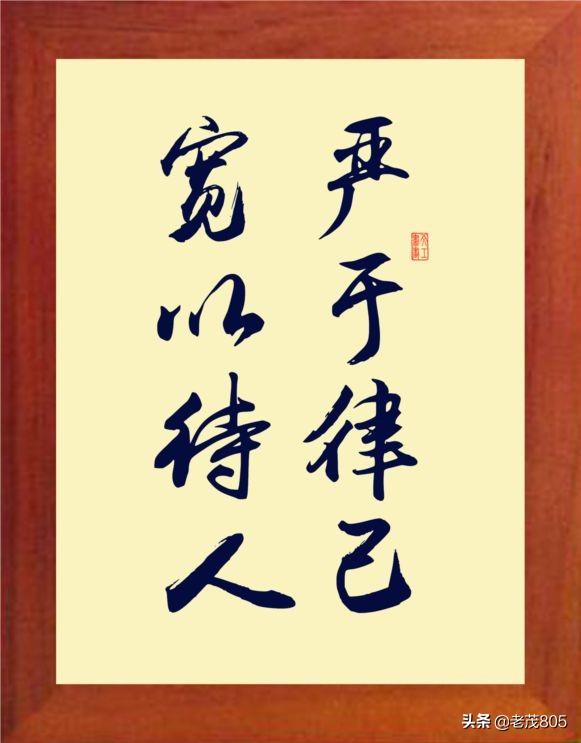 严于律己
宽以待人
头条 @老茂805